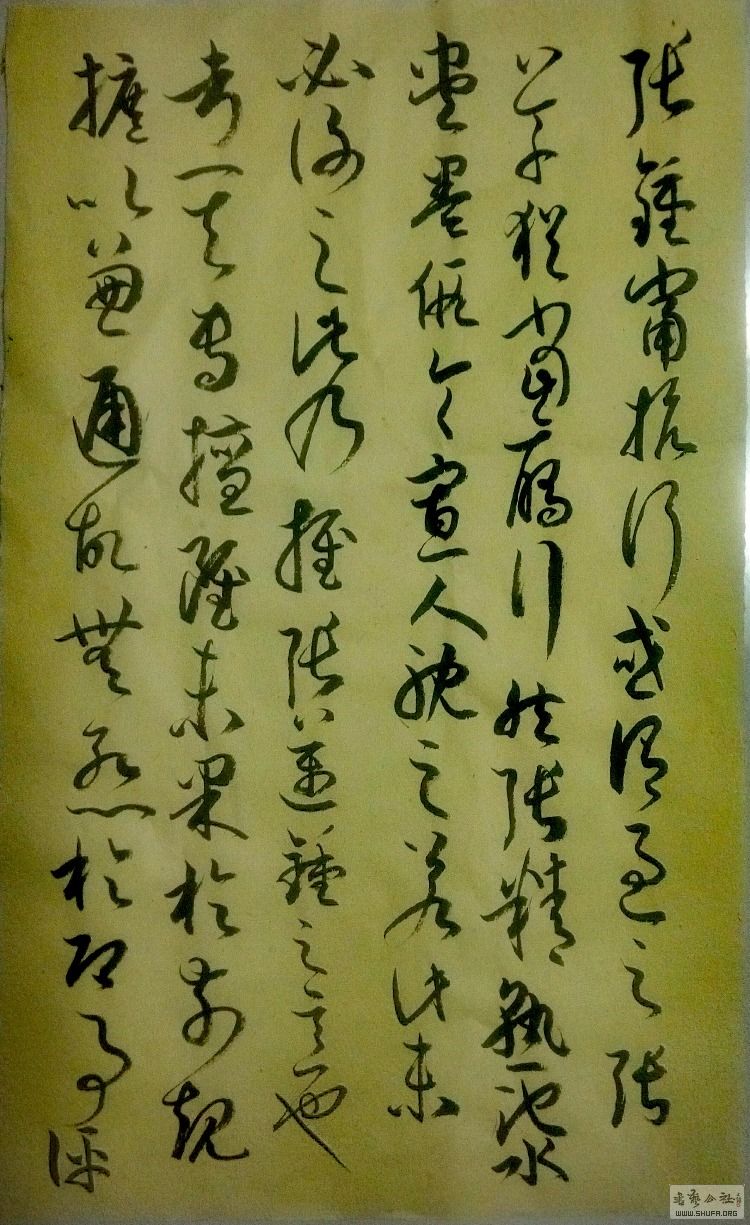 張鍾當抗行或謂過之張
草猶當鴈行然張精熟池水
盡墨假令寡人耽之若此未
必後之此乃推張邁鍾之意也
考其專擅雖未果於前規
摭以兼通故無慙於即事評
WWW.SHUFA.ORG